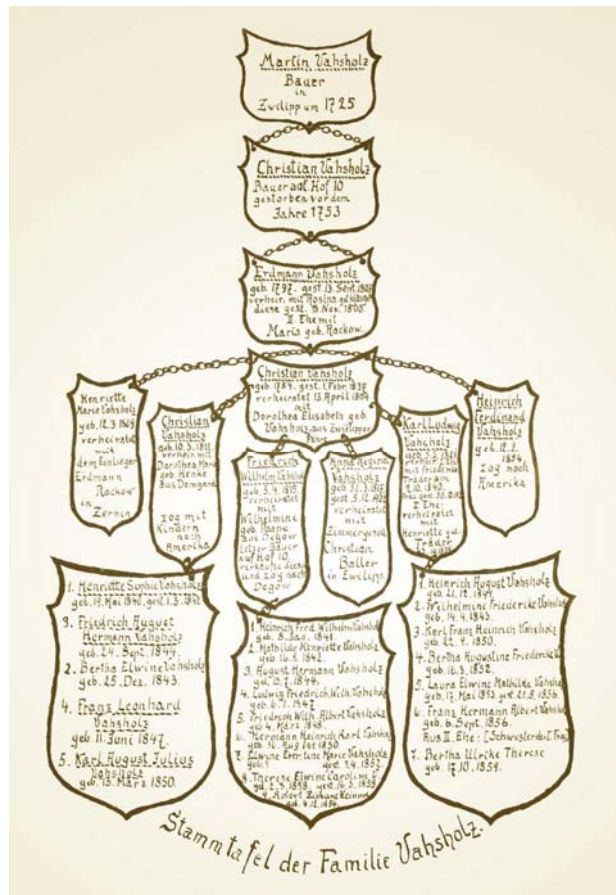 Martin Vahsholz
Bauer
in
Zwilipp um 1725
Christian Vahsholz
Bauer auf Hof 10
gestorben vor dem
Jahre 1753
Erdmann Vahsholz
geb. 1797. gest. 13. Sept.
verheir. mit Rosina
diese gest. 13. Nov. 1805.
II Ehe mit
Maria geb. Rackow.
Christian Vahsholz
geb. 1784. gest. 1. Febr. 1837
verheiratet 13. April 1804
mit
Dorothea Elisabeth geb.
Vahsholz aus Zwilipper
Henriette
Marie Vahsholz
geb. 12.3.
verheiratet
mit
dem Einlieger
Erdmann
Rackow
in
Zernin
Christian
Vahsholz
geb. 10.3.
verheir. mit
Dorothea Marie
geb. Henke
aus Damgard
zog mit
Kindern
nach
Amerika
Friedrich
Wilhelm Vahsholz
geb. 5.4. 1815.
verheiratet
mit
Wilhelmine
geb.
aus Degow
letzer Bauer
auf Hof 10,
verkaufte diesen
und zog nach
Degow
Anna Regina
Vahsholz
verheiratet
mit
Zimmergesell
Christian
Baller
in Zwilipp
Karl Ludwig
Vahsholz
geb. 3.2.
mit
Träder am
I Ehe:
verheiratet
mit
Henriette geb.
Träder
Heinrich
Ferdinand
Vahsholz
geb. 12.2.
zog nach
Amerika
1. Henriette Sophie Vahsholz
geb. 19. Mai 1840. gest. 1.3.
3. Friedrich August
Hermann Vahsholz
geb. 24. Sept. 1844.
2. Bertha Elwine Vahsholz
geb. 25. Dez. 1843.
4. Franz Leonhard
Vahsholz
geb. 11. Juni 1847.
5. Karl August Julius
Vahsholz
geb. 13. März 1850.
1. Heinrich Ferd. Wilhelm Vahsholz
geb. 8. Jan. 1841
2. Mathilde Henriette Vahsholz
geb. 16.8. 1842.
3. August Hermann Vahsholz
geb. 10.7. 1844.
4. Ludwig Friedrich Wilh. Vahsholz
geb. 6.1. 1947
5. Friedrich Wilh. Albert Vahsholz
geb. 4. März 1848.
6. Hermann Heinrich Karl Vahsholz
geb. 30. August 1850
7. Elwine Ernstine Marie Vahsholz
geb. gest. 1.4. 1857.
Therese Elwine Caroline
geb. 2.3. 1858. gest. 16.3. 1858
9. Robert Richard Heinrich
geb. 4.12.
1. Heinrich August Vahsholz
geb. 21.12.
2. Wilhelmine Friederike Vahsholz
geb. 14.4. 1843.
3. Karl Franz Heinrich Vahsholz
geb. 22.8. 1850.
4. Bertha Augustine Friederike
geb. 16.3. 1852.
5. Laura Elwine Mathilde Vahsholz
geb. 17. Mai 1853. gest. 21.2. 1856.
6. Franz Hermann Albert Vahsholz
geb. 6. Sept. 1856.
Aus II. Ehe: [Schwester der I. Frau]
7. Bertha Ulrike Therese
geb. 17.10. 1859.
Stammtafel der Familie Vahsholz.